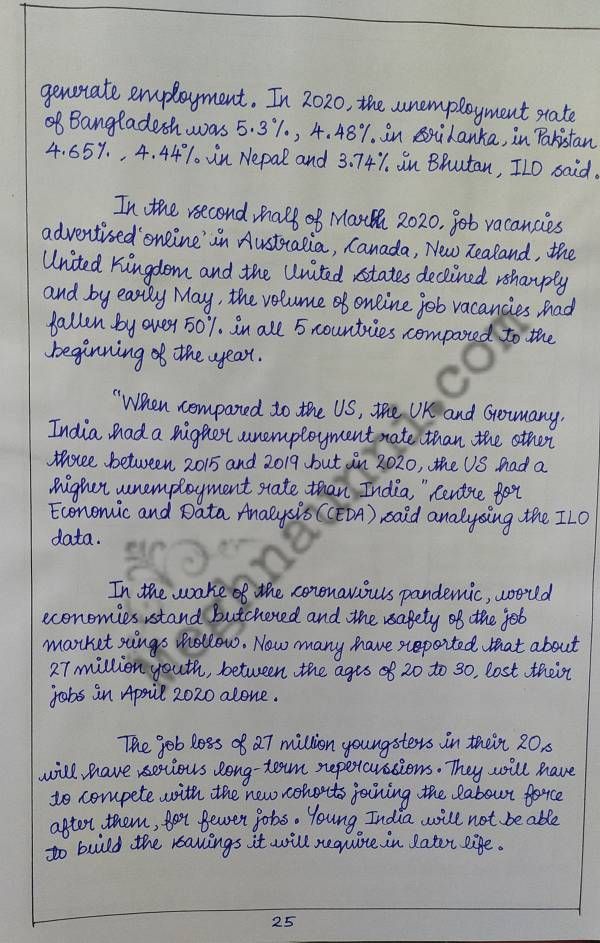 generate employment. In 2020, the unemployment rate
of Bangladesh was 5.3%, 4.48% in Sri Lanka, in Pakistan
4.65%, 4.44% in Nepal and 3.74% in Bhutan, ILO said.
In the second half of March 2020, job vacancies
advertised 'online' in Australia, Canada, New Zealand, the
United Kingdom and the United States declined sharply
and by early May, the volume of online job vacancies had
fallen by over 50% in all 5 countries compared to the
beginning of the year.
"When compared to the US, the UK and Germany,
India had a higher unemployment rate than the other
three between 2015 and 2019 but in 2020, the US had a
higher unemployment rate than India," Centre for
Economic and Data Analysis (CEDA) said analysing the ILO
data.
In the wake of the coronavirus pandemic, world
economies stand butchered and the safety of the job
market rings hollow. Now many have reported that about
27 million youth, between the ages of 20 to 30, lost their
jobs in April 2020 alone.
The job loss of 27 million youngsters in their 20s
will have serious long-term repercussions. They will have
to compete with the new cohorts joining the labour force
after them, for fewer jobs. Young India will not be able
to build the savings it will require in later life.
25